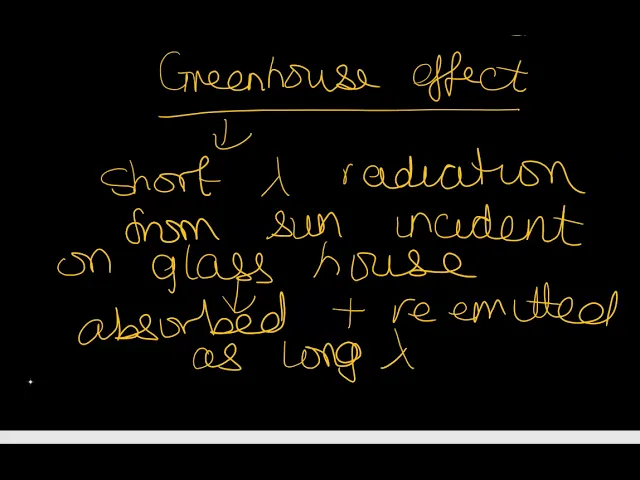 Greenhouse effect
short λ radiation
from sun incident
on glass house
absorbed + re emitted
as long λ